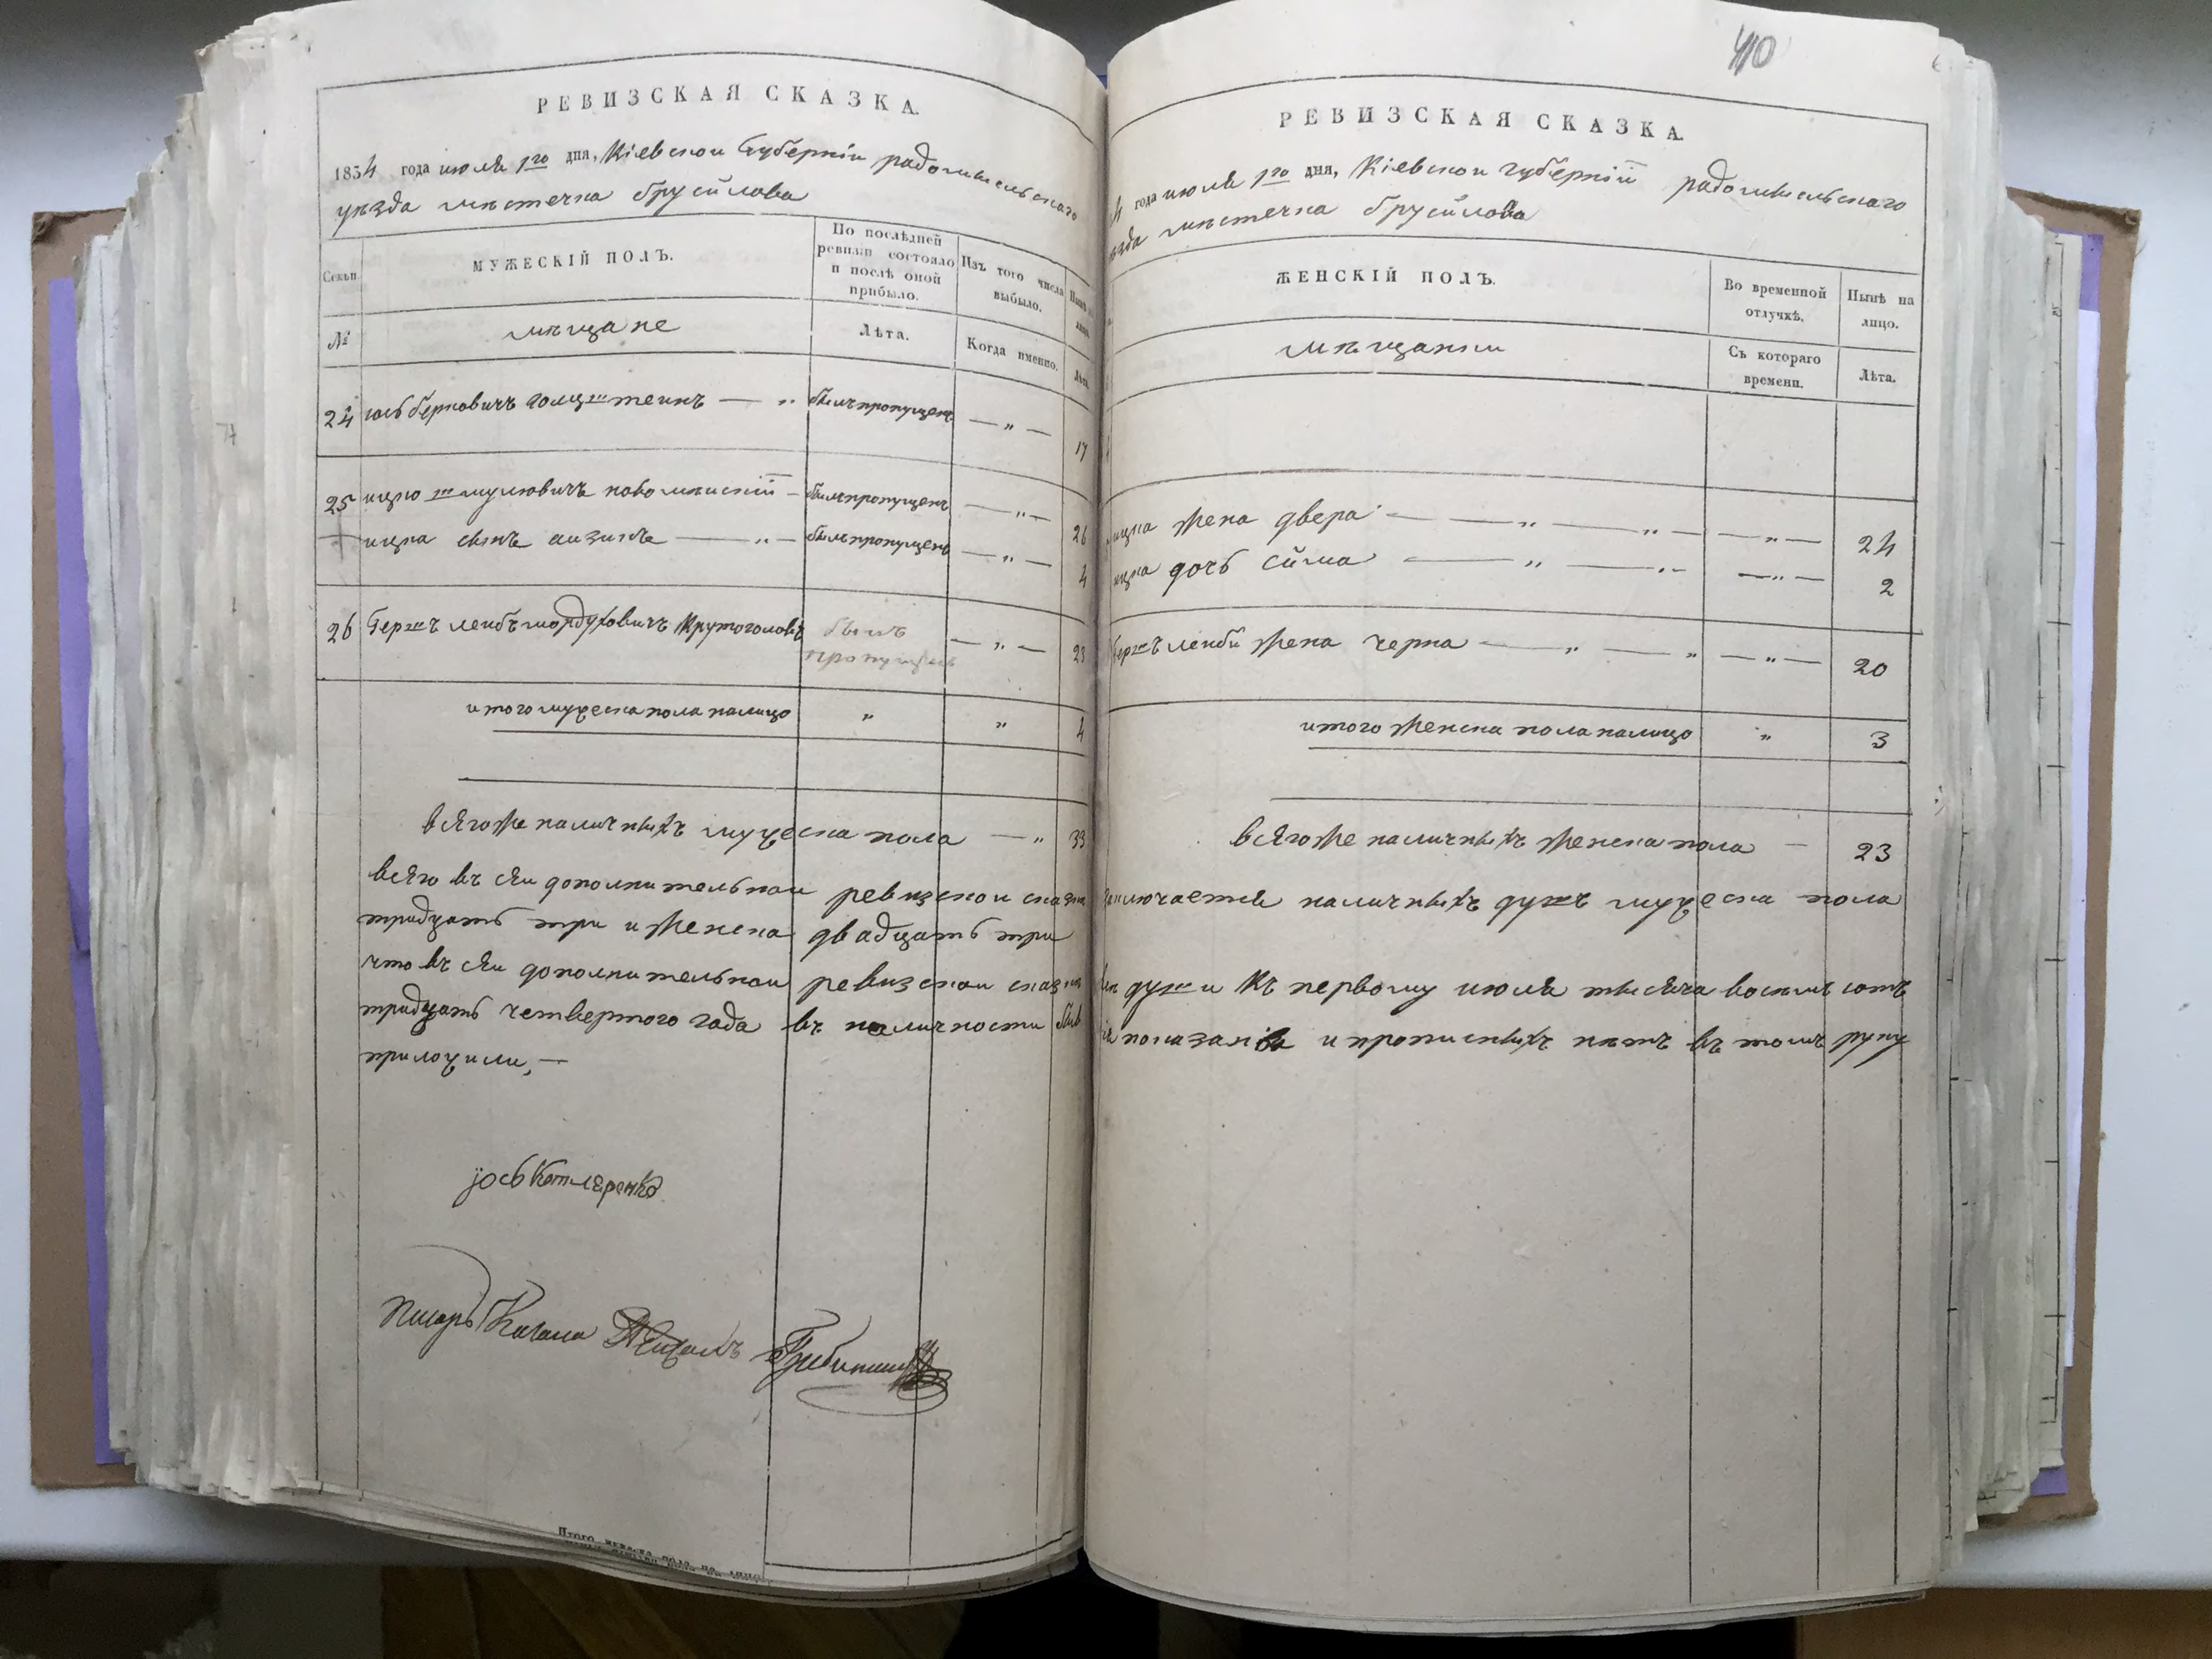 РЕВИЗСКАЯ СКАЗКА.
1834 года июля 1го дня, Кіевской Губерніи радомысльскаго
уѣзда мѣстечка брусилова
Секьи.
МУЖЕСКІЙ ПОЛЪ.
По послѣдней ревизіи состояло и послѣ оной прибыло.
Изъ того числа выбыло.
№
мѣщане
Лѣта.
Когда именно.
24 іось берковичъ голцштеинъ — „ былъ пропущенъ — „ — 17
25 ицко шмулювичъ новоминскій — былъ пропущенъ — „ — 26
ицка сынъ аизикъ — „ — былъ пропущенъ — „ — 4
26 Гершъ леибъ мордуховичъ Крутоголовъ былъ пропущенъ — „ — 23
итого мужеска пола налицо „ „ 4
всягоже наличныхъ мужеска пола — „ 33
всяго въ сяи дополнительнои ревизскои
тридцать три и женска двадцать три
что въ сяи дополнительнои ревизскои
тридцать четвертого года въ наличности
приложили, —
іось Котляренко
Писарь Кагала
410
РЕВИЗСКАЯ СКАЗКА.
4 года июля 1го дня, Кіевской губерніи радомысльскаго
мѣстечка брусилова
ЖЕНСКІЙ ПОЛЪ.
Во временной отлучкѣ.
Нынѣ на лицо.
мѣщанки
Съ котораго времени.
Лѣта.
ицка жена двера — — „ — „ — — „ — 24
ицка дочь сима — „ — „ — — „ — 2
Гершъ леиби жена черна — „ — „ — „ — 20
итого женска пола налицо „ 3
всягоже наличныхъ женска пола — 23
заключается наличныхъ душъ мужеска пола
души къ первому июля тысяча восемь сотъ
показаніа и прописныхъ нѣтъ въ томъ руку